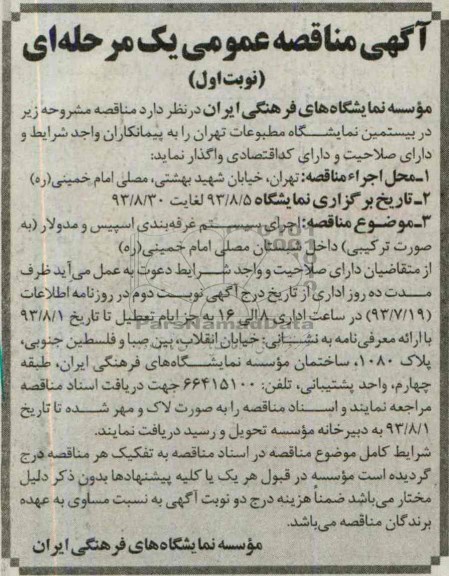 آگهی مناقصه عمومی یک مرحله‌ای
(نوبت اول)
مؤسسه نمایشگاه‌های فرهنگی ایران در نظر دارد مناقصه مشروحه زیر
در بیستمین نمایشگاه مطبوعات تهران را به پیمانکاران واجد شرایط و
دارای صلاحیت و دارای کداقتصادی واگذار نماید:
۱ـ محل اجراء مناقصه: تهران، خیابان شهید بهشتی، مصلی امام خمینی(ره)
۲ـ تاریخ برگزاری نمایشگاه ۹۳/۸/۵ لغایت ۹۳/۸/۳۰
۳ـ موضوع مناقصه: اجرای سیستم غرفه‌بندی اسپیس و مدولار (به
صورت ترکیبی) داخل شبستان مصلی امام خمینی(ره)
از متقاضیان دارای صلاحیت و واجد شرایط دعوت به عمل می‌آید ظرف
مدت ده روز اداری از تاریخ درج آگهی نوبت دوم در روزنامه اطلاعات
(۹۳/۷/۱۹) در ساعت اداری ۸ الی ۱۶ به جز ایام تعطیل تا تاریخ ۹۳/۸/۱
با ارائه معرفی‌نامه به نشانی: خیابان انقلاب، بین صبا و فلسطین جنوبی،
پلاک ۱۰۸۰، ساختمان مؤسسه نمایشگاه‌های فرهنگی ایران، طبقه
چهارم، واحد پشتیبانی، تلفن: ۶۶۴۱۵۱۰۰ جهت دریافت اسناد مناقصه
مراجعه نمایند و اسناد مناقصه را به صورت لاک و مهر شده تا تاریخ
۹۳/۸/۱ به دبیرخانه مؤسسه تحویل و رسید دریافت نمایند.
شرایط کامل موضوع مناقصه در اسناد مناقصه به تفکیک هر مناقصه درج
گردیده است مؤسسه در قبول هر یک یا کلیه پیشنهادها بدون ذکر دلیل
مختار می‌باشد ضمناً هزینه درج دو نوبت آگهی به نسبت مساوی به عهده
برندگان مناقصه می‌باشد.
مؤسسه نمایشگاه‌های فرهنگی ایران